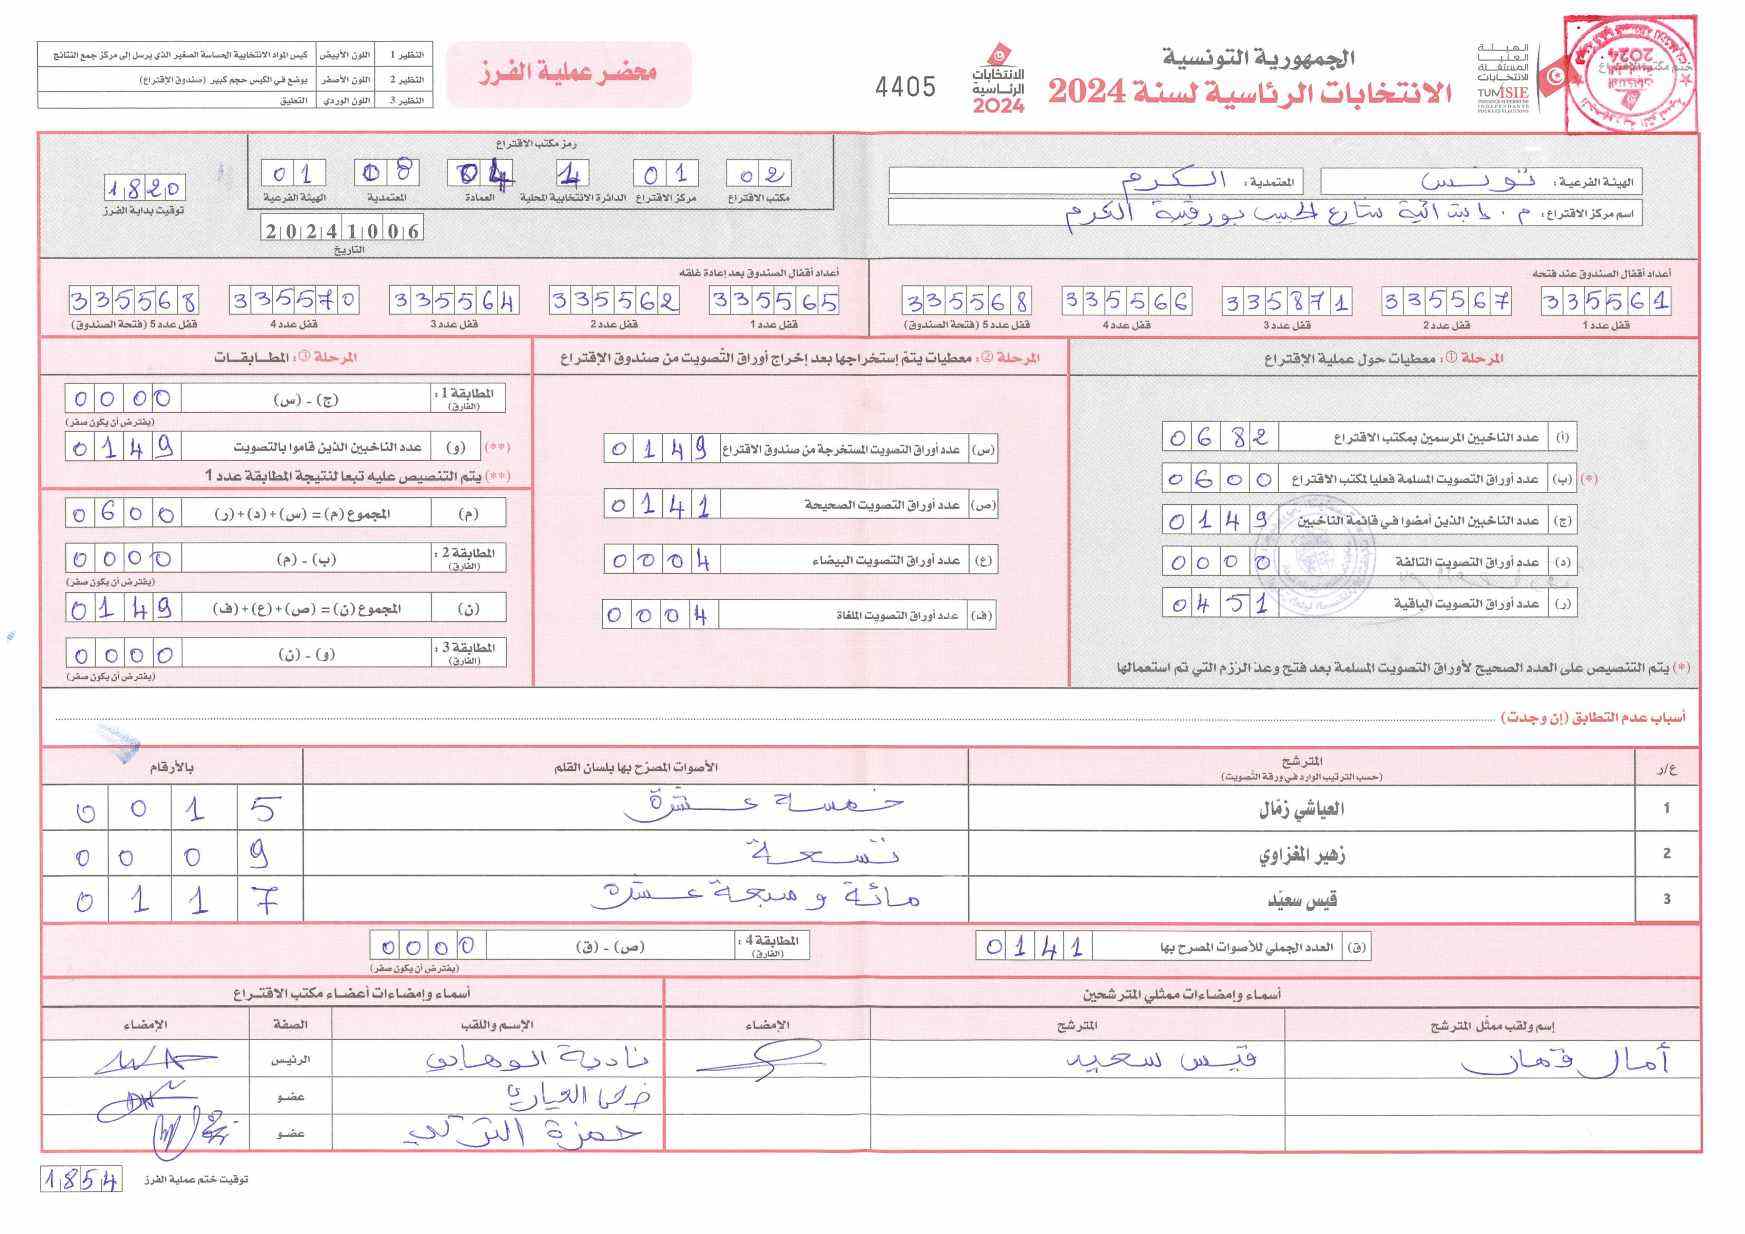 النظير 1 اللون الأبيض كيس المواد الانتخابية الحساسة الصغير الذي يرسل إلى مركز جمع النتائج
النظير 2 اللون الأصفر يوضع في الكيس حجم كبير (صندوق الاقتراع)
النظير 3 اللون الوردي التعليق
محضر عملية الفرز
4405
الانتخابات
الرئاسية
2024
الجمهورية التونسية
الانتخابات الرئاسية لسنة 2024
الهيئة
العليا
المستقلة
للانتخابات
TUNISIE
ختم مكتب الاقتراع
الهيئة الفرعية: تونس
المعتمدية: الكرم
اسم مركز الاقتراع: م. ابتدائية شارع الحبيب بورقيبة الكرم
رمز مكتب الاقتراع
02 مكتب الاقتراع
01 مركز الاقتراع
1 الدائرة الانتخابية المحلية
04 العمادة
08 المعتمدية
01 الهيئة الفرعية
20241006
التاريخ
1820
توقيت بداية الفرز
أعداد أقفال الصندوق عند فتحه
335561 335567 335871 335566 335568
قفل عدد 1 قفل عدد 2 قفل عدد 3 قفل عدد 4 قفل عدد 5 (فتحة الصندوق)
أعداد أقفال الصندوق بعد إعادة غلقه
335565 335562 335564 335570 335568
قفل عدد 1 قفل عدد 2 قفل عدد 3 قفل عدد 4 قفل عدد 5 (فتحة الصندوق)
المرحلة ①: معطيات حول عملية الاقتراع
(أ) عدد الناخبين المرسمين بمكتب الاقتراع 0682
(*) (ب) عدد أوراق التصويت المسلمة فعليا لمكتب الاقتراع 0600
(ج) عدد الناخبين الذين أمضوا في قائمة الناخبين 0149
(د) عدد أوراق التصويت التالفة 0000
(ر) عدد أوراق التصويت الباقية 0451
(*) يتم التنصيص على العدد الصحيح لأوراق التصويت المسلمة بعد فتح وعد الرزم التي تم استعمالها
المرحلة ②: معطيات يتم إستخراجها بعد إخراج أوراق التصويت من صندوق الاقتراع
(س) عدد أوراق التصويت المستخرجة من صندوق الاقتراع 0149
(ص) عدد أوراق التصويت الصحيحة 0141
(ع) عدد أوراق التصويت البيضاء 0004
(ف) عدد أوراق التصويت الملغاة 0004
المرحلة ③: المطابقات
المطابقة 1: (الفارق) (ج) - (س) 0000
(يفترض أن يكون صفر)
(**) (و) عدد الناخبين الذين قاموا بالتصويت 0149
(**) يتم التنصيص عليه تبعا لنتيجة المطابقة عدد 1
(م) المجموع (م) = (س)+(د)+(ر) 0600
المطابقة 2: (الفارق) (ب) - (م) 0000
(يفترض أن يكون صفر)
(ن) المجموع (ن) = (ص)+(ع)+(ف) 0149
المطابقة 3: (الفارق) (و) - (ن) 0000
(يفترض أن يكون صفر)
أسباب عدم التطابق (إن وجدت)
ع/ر المترشح الأصوات المصرّح بها بلسان القلم بالأرقام
(حسب الترتيب الوارد في ورقة التصويت)
1 العياشي زمّال خمسة عشرة 0015
2 زهير المغزاوي تسعة 0009
3 قيس سعيّد مائة وسبعة عشرة 0117
(ق) العدد الجملي للأصوات المصرح بها 0141
المطابقة 4: (الفارق) (ص) - (ق) 0000
(يفترض أن يكون صفر)
أسماء وإمضاءات ممثلي المترشحين
إسم ولقب ممثّل المترشح المترشح الإمضاء
أمال قمان قيس سعيد
أسماء وإمضاءات أعضاء مكتب الاقتراع
الإسم واللقب الصفة الإمضاء
نادية الوهابي الرئيس
العياري عضو
حمزة التركي عضو
توقيت ختم عملية الفرز 1854